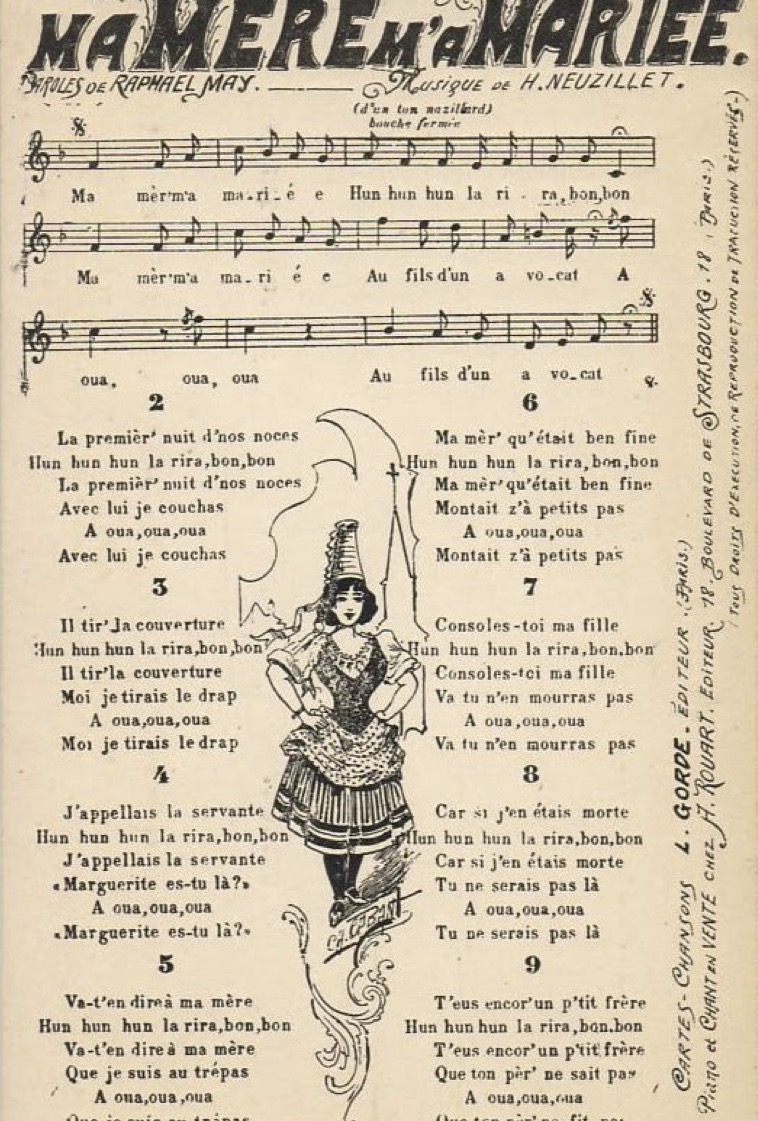 MA MÈRE M'A MARIÉE.
PAROLES DE RAPHAEL MAY. Musique de H. NEUZILLET.
(d'un ton nazillard)
bouche fermée
Ma mèr'm'a ma_ri_é e Hun hun hun la ri _ ra, bon, bon
Ma mèr'm'a ma_ri é e Au fils d'un a vo_cat A
oua, oua, oua Au fils d'un a vo_cat
2
La premièr' nuit d'nos noces
Hun hun hun la rira, bon, bon
La premièr' nuit d'nos noces
Avec lui je couchas
A oua, oua, oua
Avec lui je couchas
3
Il tir' la couverture
Hun hun hun la rira, bon, bon
Il tir' la couverture
Moi je tirais le drap
A oua, oua, oua
Moi je tirais le drap
4
J'appellais la servante
Hun hun hun la rira, bon, bon
J'appellais la servante
«Marguerite es-tu là?»
A oua, oua, oua
«Marguerite es-tu là?»
5
Va-t'en dire à ma mère
Hun hun hun la rira, bon, bon
Va-t'en dire à ma mère
Que je suis au trépas
A oua, oua, oua
Que je suis au trépas
6
Ma mèr' qu'était ben fine
Hun hun hun la rira, bon, bon
Ma mèr' qu'était ben fine
Montait z'à petits pas
A oua, oua, oua
Montait z'à petits pas
7
Consoles-toi ma fille
Hun hun hun la rira, bon, bon
Consoles-toi ma fille
Va tu n'en mourras pas
A oua, oua, oua
Va tu n'en mourras pas
8
Car si j'en étais morte
Hun hun hun la rira, bon, bon
Car si j'en étais morte
Tu ne serais pas là
A oua, oua, oua
Tu ne serais pas là
9
T'eus encor' un p'tit frère
Hun hun hun la rira, bon, bon
T'eus encor' un p'tit frère
Que ton pèr' ne sait pas
A oua, oua, oua
Que ton pèr' ne
CARTES-CHANSONS L. GORDE. ÉDITEUR. (PARIS.)
Piano et CHANT en VENTE CHEZ A. ROUART. EDITEUR. 18. BOULEVARD DE STRASBOURG. 18 (PARIS.)
(TOUS DROITS D'EXECUTION, DE REPRODUCTION DE TRADUCTION RÉSERVÉS.)